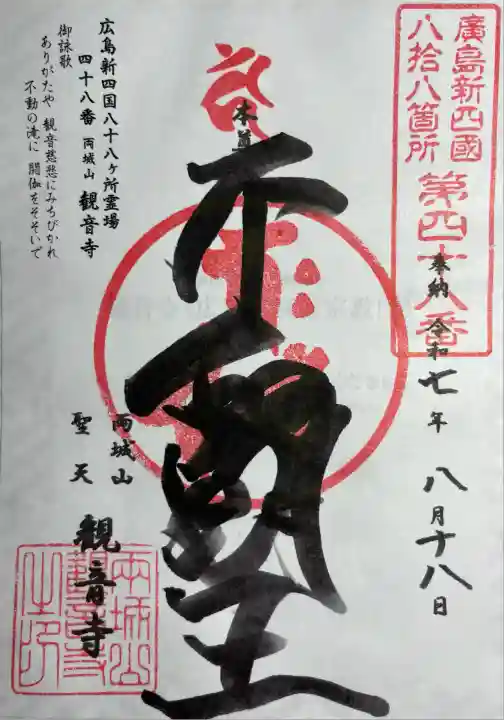 廣島新四國
八拾八箇所
第四十八番
奉納 令和七年 八月十八日
本尊
不動明王
広島新四国八十八ヶ所霊場
四十八番 両城山 観音寺
御詠歌
ありがたや 観音慈悲にみちびかれ
不動の滝に 閼伽をそそいで
両城山
聖天
観音寺
両城山
観音寺
之印